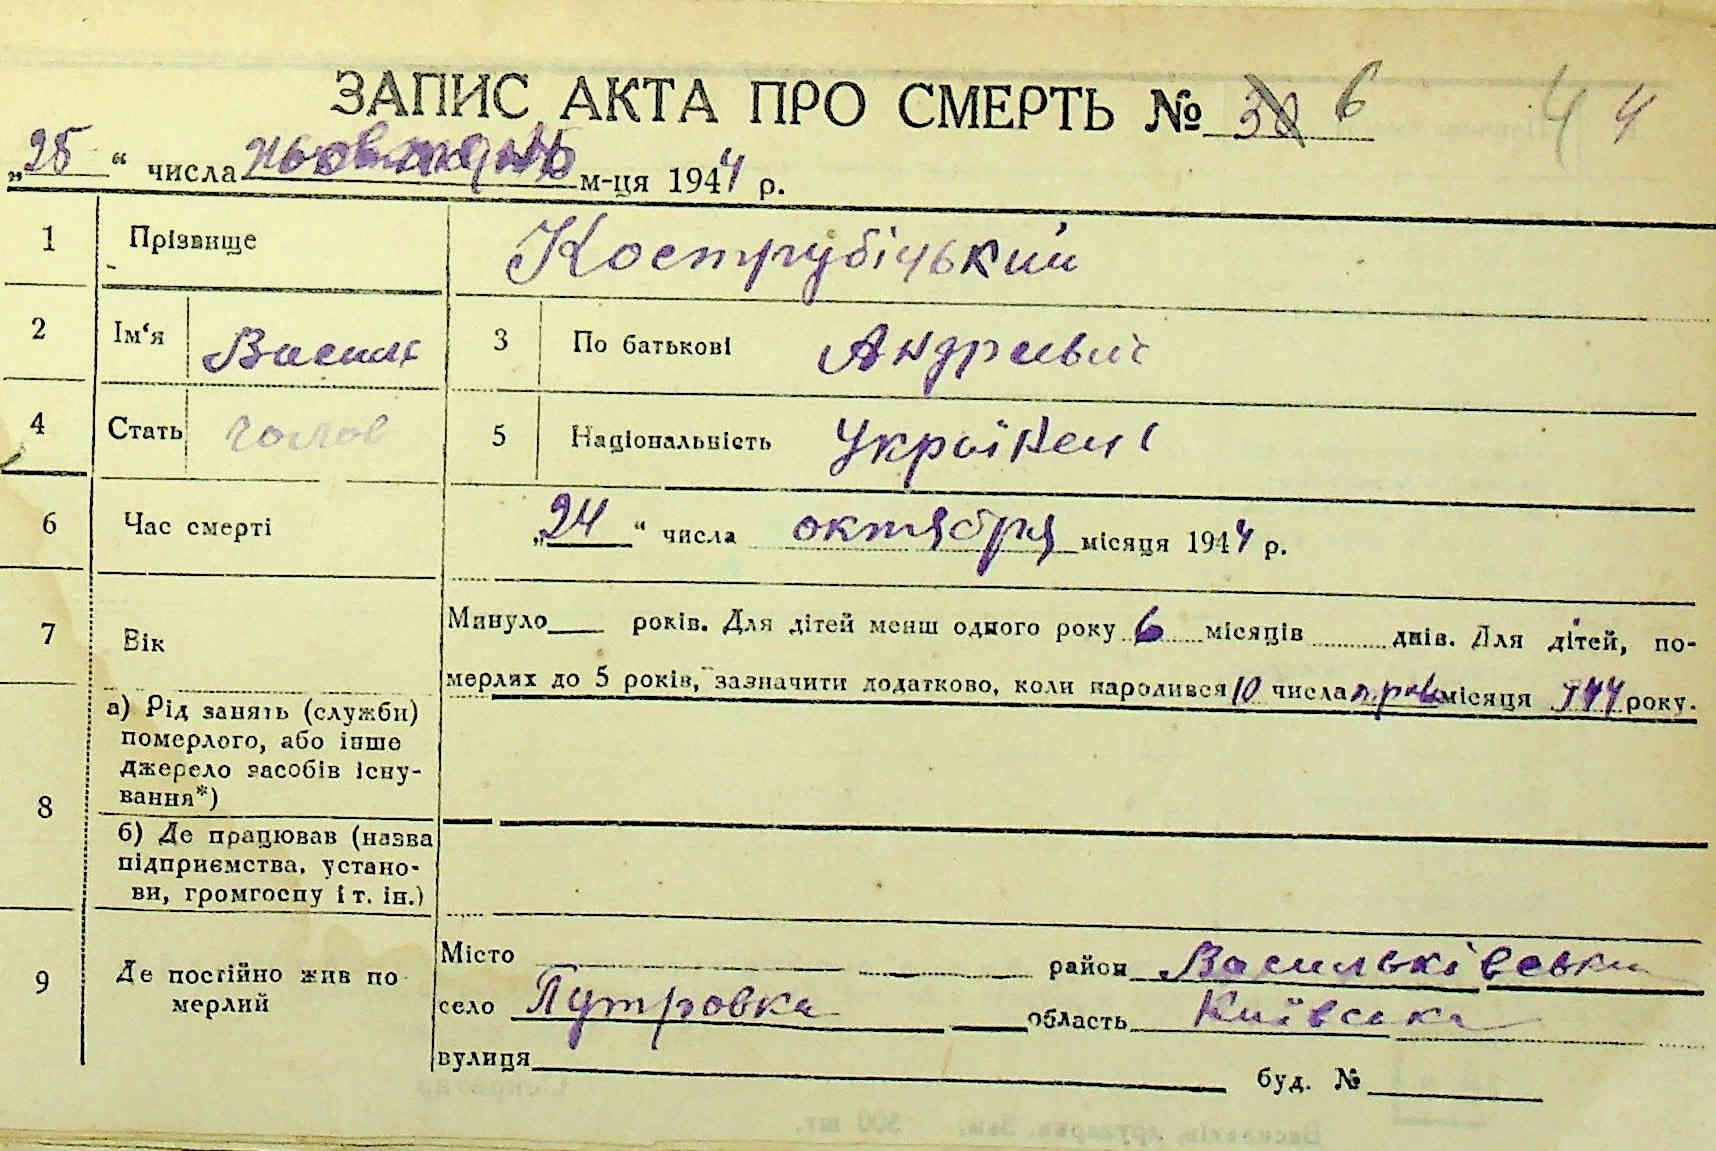 ЗАПИС АКТА ПРО СМЕРТЬ № 30 6 4 4
„25“ числа м-ця 1944 р.
1 Прізвище Кострубіцький
2 Ім‘я Василь 3 По батькові Андреевич
4 Стать чолов 5 Національність Українец
6 Час смерті „24“ числа октября місяця 1944 р.
7 Вік Минуло років. Для дітей менш одного року 6 місяців днів. Для дітей, по-
мерлих до 5 років, зазначити додатково, коли народився 10 числа місяця 944 року.
8 а) Рід занять (служби)
померлого, або інше
джерело засобів існу-
вання*)
б) Де працював (назва
підприємства, устано-
ви, громгоспу і т. ін.)
9 Де постійно жив по-
мерлий
Місто район Васильківськи
село Путровка область Київська
вулиця буд. №